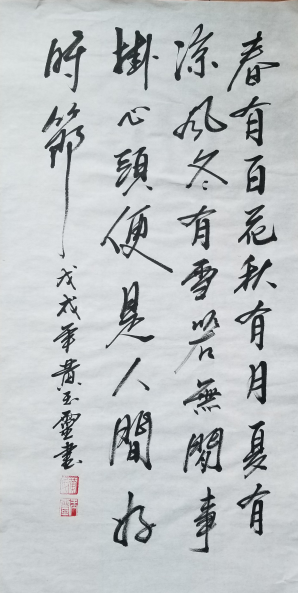 春有百花秋有月夏有
凉风冬有雪若無閒事
掛心頭便是人間好
時節
戊戌年黄玉靈書